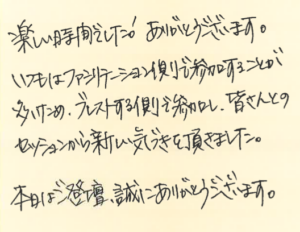 楽しい時間でした! ありがとうございます。
いつもはファシリテーション側で参加することが
多いため、ブレストする側で参加し、皆さんとの
セッションから新しい気づきを頂きました。
本日はご登壇、誠にありがとうございます。